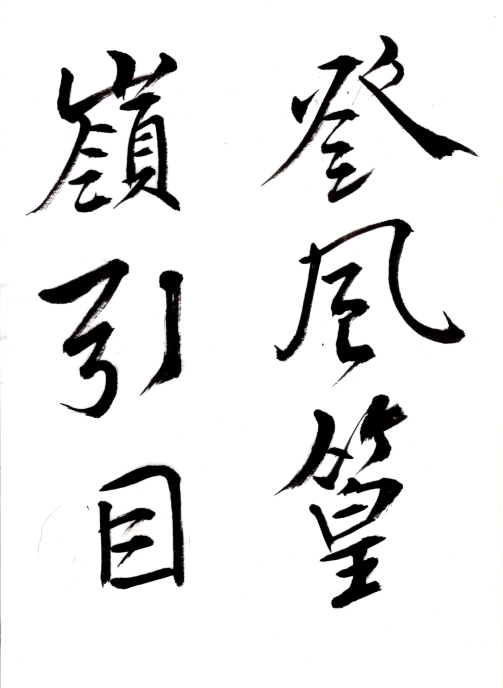 登風篁
嶺引目